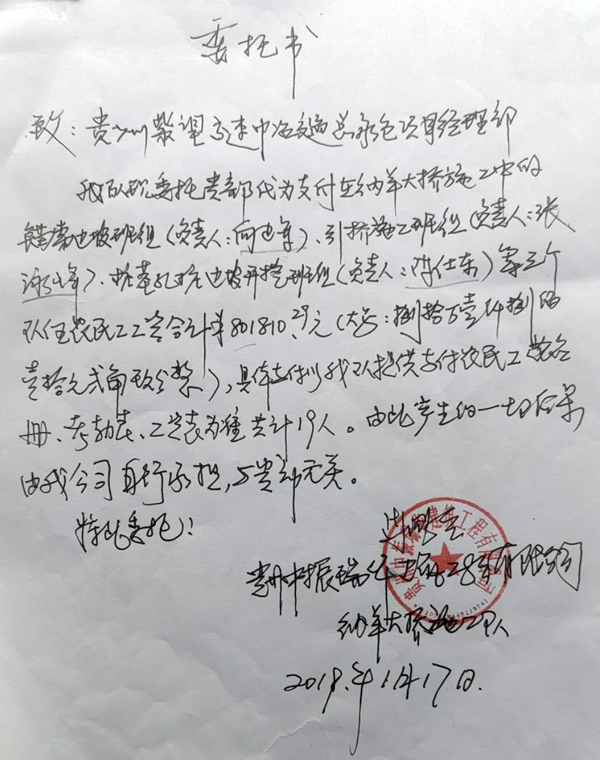 委托书
致：贵州紫望高速中冶交通总承包项目经理部
我队现委托贵部代为支付在纳羊大桥施工中的
锚索边坡班组（负责人：向 ）、引桥施工班组（负责人：张
）、桩基孔桩边坡开挖班组（负责人：陈仕东）等三个
队伍农民工工资合计￥801810.29元（大写：捌拾万壹仟捌佰
壹拾元贰角玖分整），具体支付以我队提供支付农民工花名
册、考勤表、工资表为准共计19人。由此产生的一切后果
由我公司自行承担，与贵部无关。
特此委托！
贵州中振瑞 建 工程有限公司
纳羊大桥施工队
2018年1月17日.